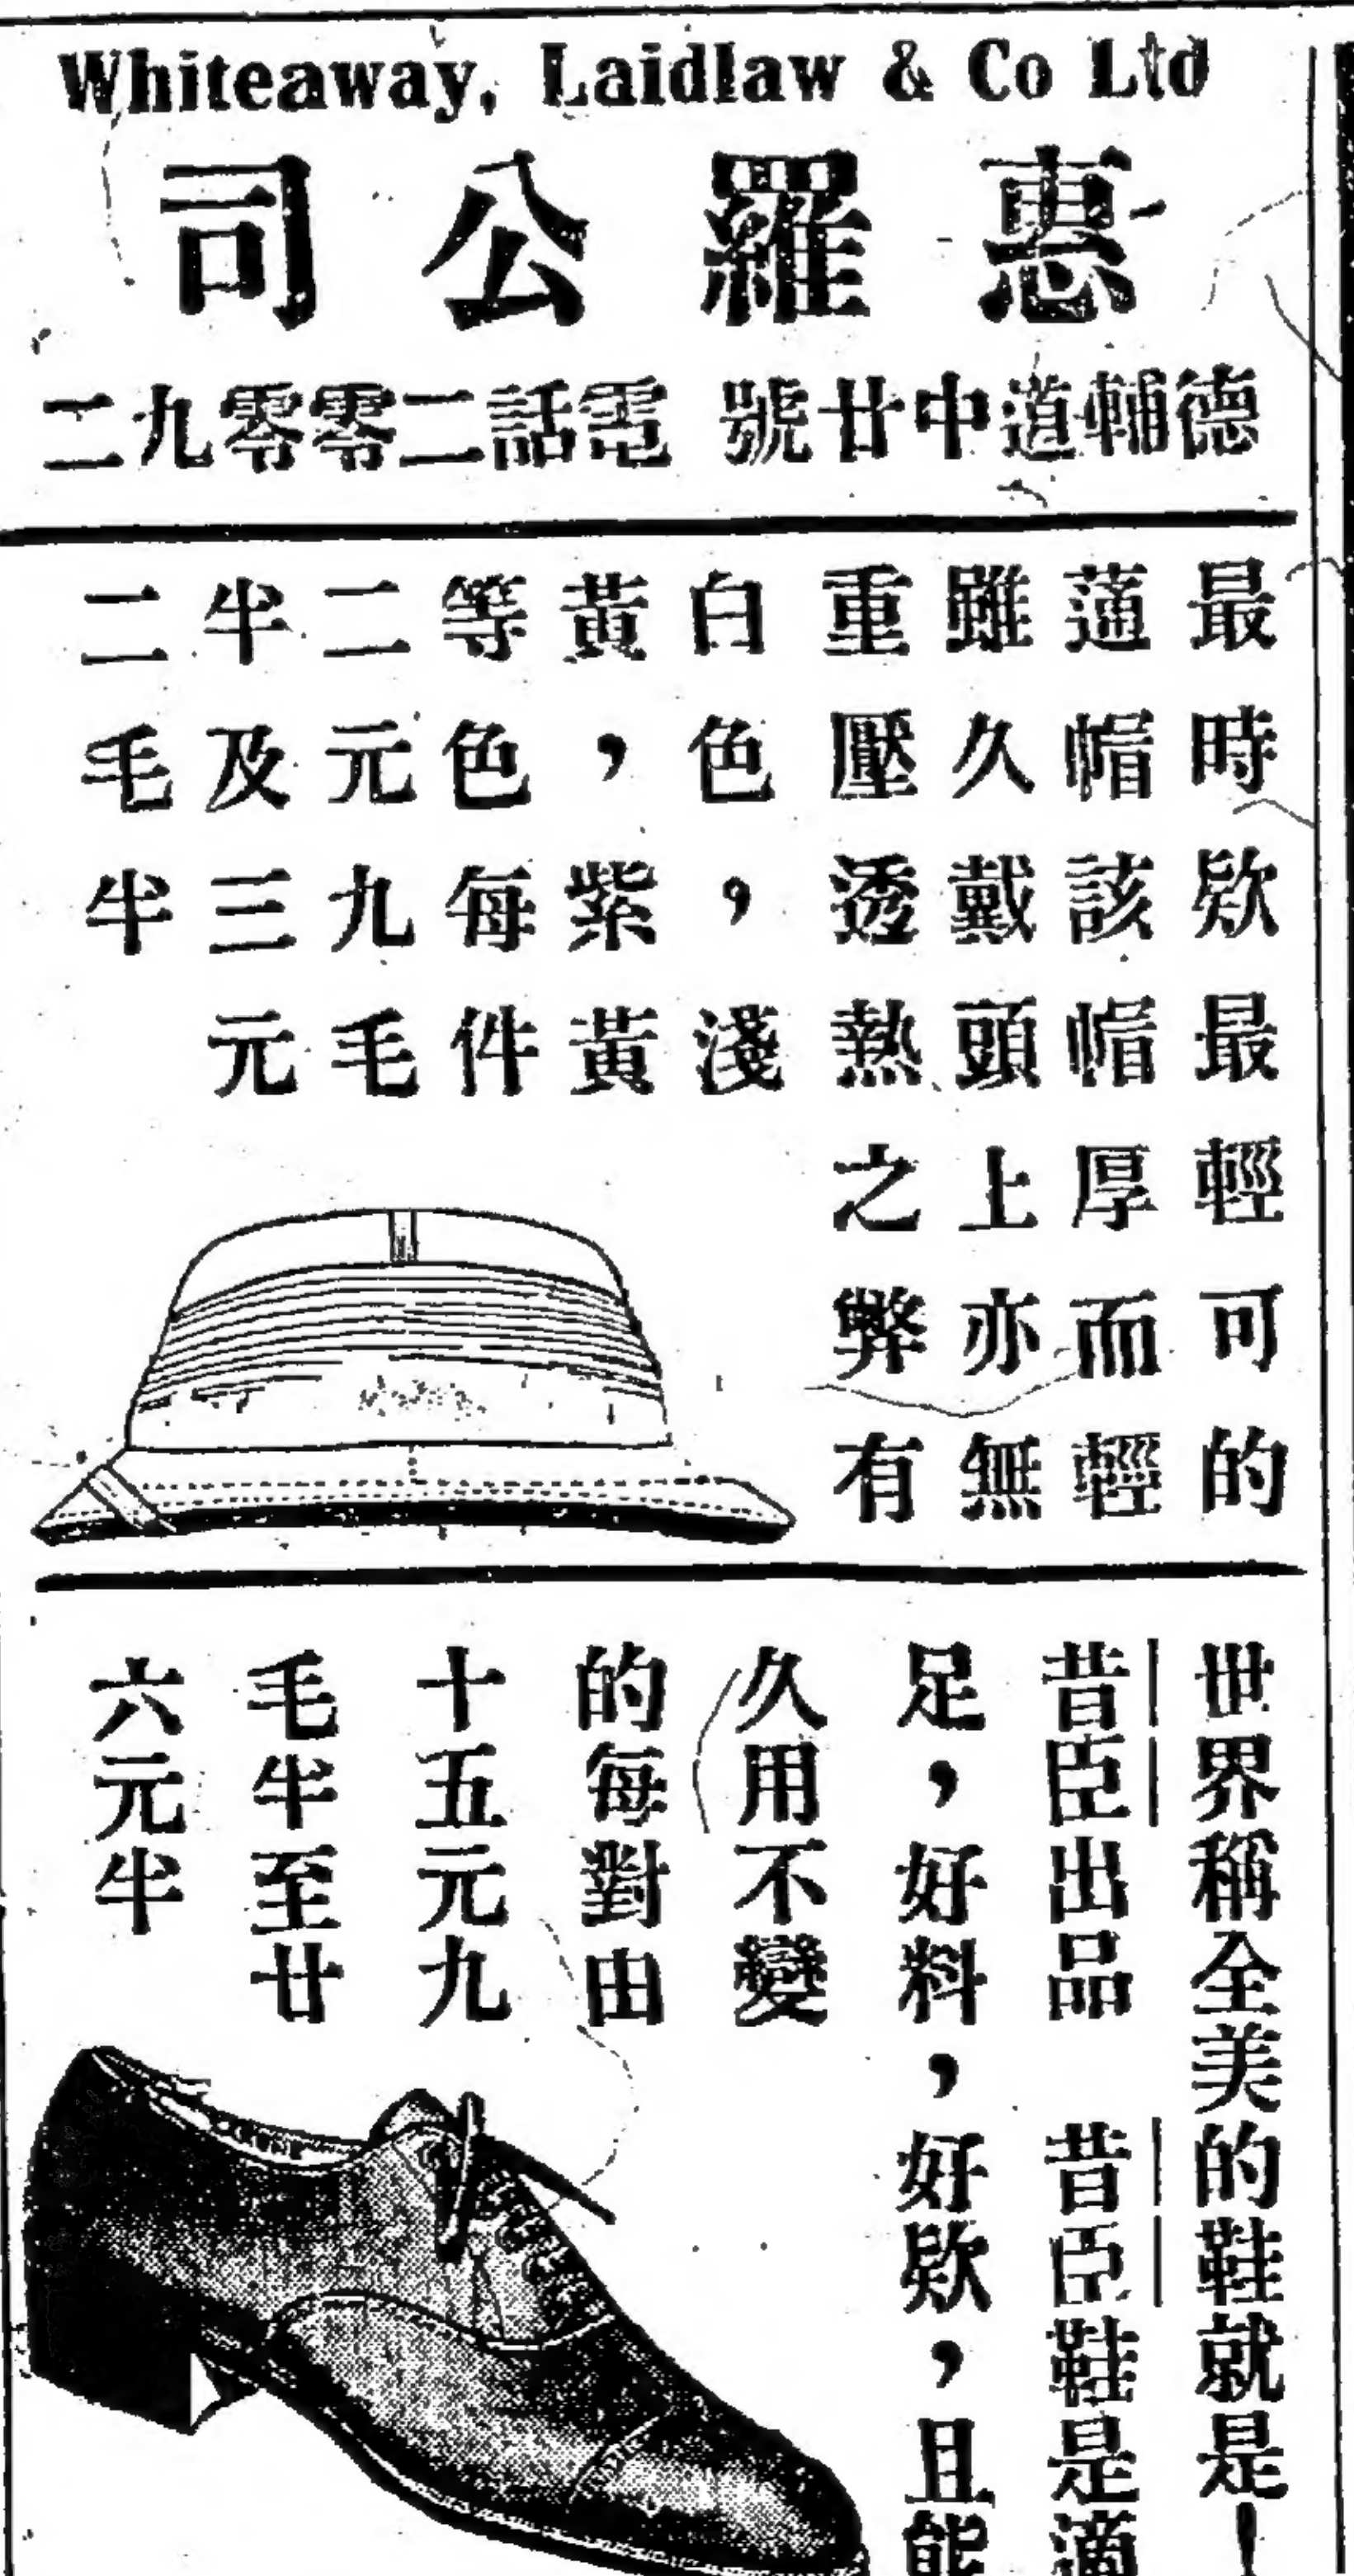 Whiteaway, Laidlaw & Co Ltd
惠羅公司
德輔道中廿號 電話二零零九二
最時欵最輕可的
薖帽該帽厚而輕
雖久戴頭上亦無
重壓透熱之弊有
白色，淺
黃，紫黃
等色每件
二元九毛
半及三元
二毛半
世界稱全美的鞋就是—
昔臣出品 昔臣鞋是適
足，好料，好欵，且能
久用不變
的每對由
十五元九
毛半至廿
六元半